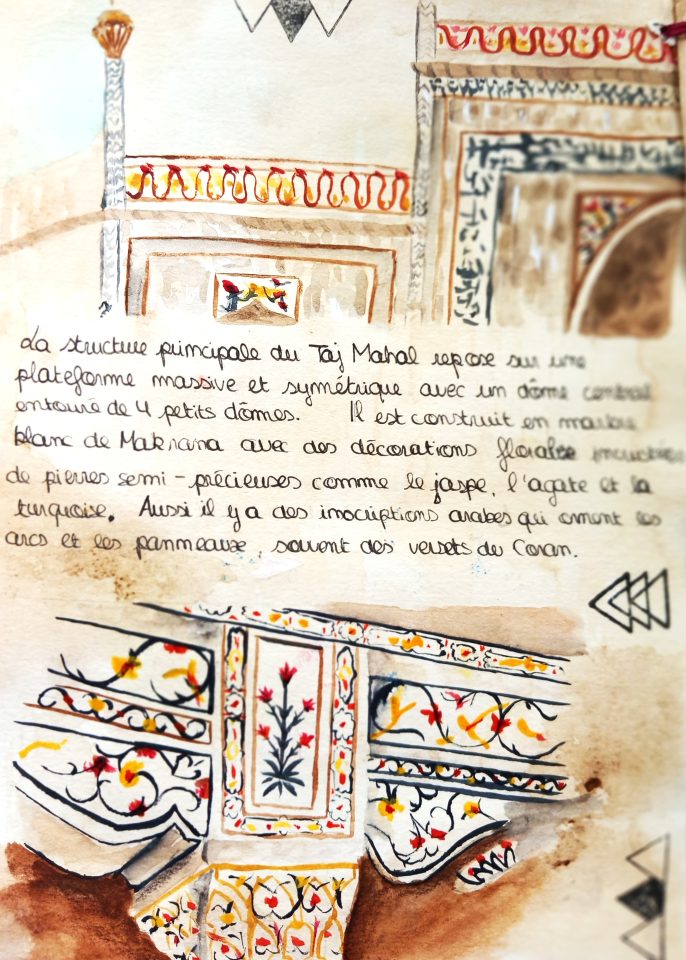 La structure principale du Taj Mahal repose sur une
plateforme massive et symétrique avec un dôme central
entouré de 4 petits dômes. Il est construit en marbre
blanc de Makrana avec des décorations florales incrustées
de pierres semi-précieuses comme le jaspe, l'agate et la
turquoise. Aussi il y a des inscriptions arabes qui ornent les
arcs et les panneaux, souvent des versets du Coran.